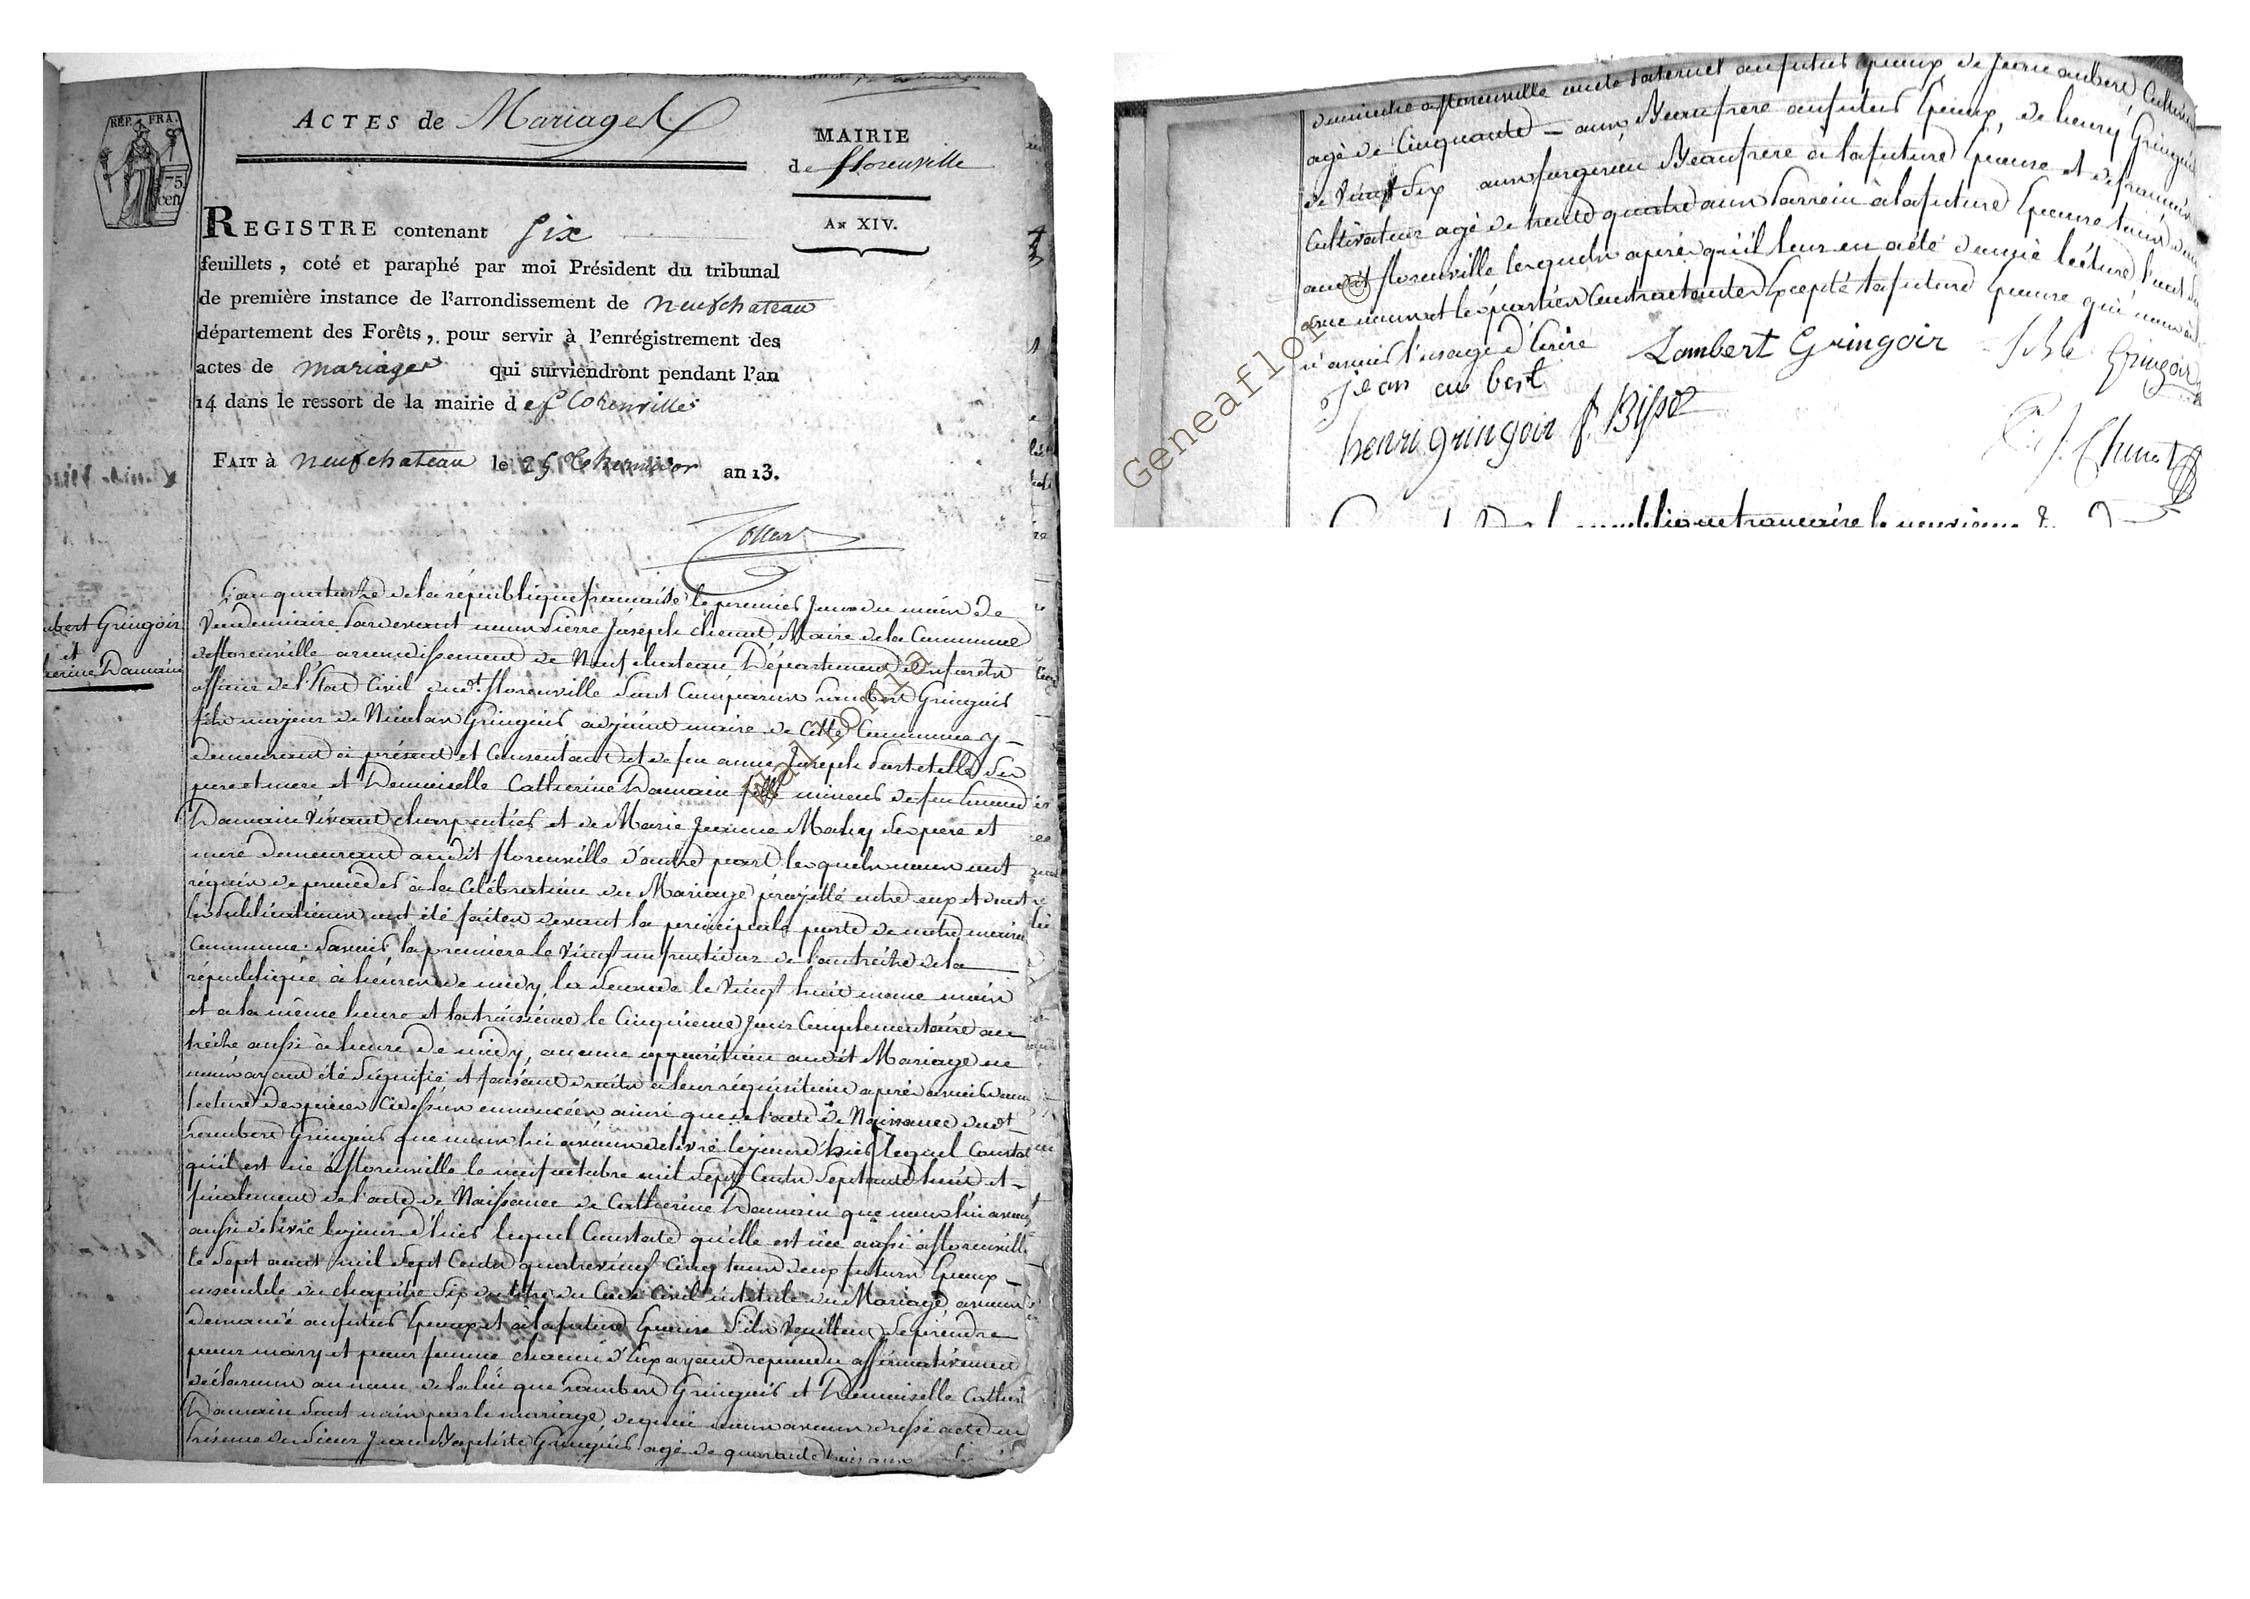 RÉP. FRA.
75
cen
ACTES de Mariages
MAIRIE
de florenville
AN XIV.
REGISTRE contenant six
feuillets, coté et paraphé par moi Président du tribunal
de première instance de l'arrondissement de neufchateau
département des Forêts, pour servir à l'enrégistrement des
actes de mariages qui surviendront pendant l'an
14 dans le ressort de la mairie de florenville
FAIT à neufchateau le 25 thermidor an 13.
bert Gringoir
et
herine Damain
L'an quatorze de la république française le premier Jour du mois de
Vendemiaire Pardevant nous Pierre Joseph chenot, Maire de la Commune
de florenville arrondissement de Neufchateau Département des forêts
officier de l'Etat Civil dudt florenville sont Comparus Lambert Gringoir
fils majeur de Nicolas Gringoir adjoint maire de Cette Commune y
demeurant à présent et Consentant et de feu anne Joseph ses
pere et mere et Demoiselle Catherine Damain fille mineur de feu
Damain Vivant charpentier et de Marie Jeanne Mahy ses pere et
mere demeurant audit florenville d'autre part lesquels nous ont
réquis de procéder à la Célébration du Mariage projetté entre eux et dont
les publications ont été faites devant la principale porte de notre maison
Commune: savoir, la premiere le Vingt un fructidor de l'an treize de la
république à heure de midy, la seconde le Vingt huit meme mois
et a la même heure et la troisieme le Cinquieme Jour Complementaire an
treize aussi à heure de midy, aucune opposition audit Mariage ne
nous ayant été signifié et faisant droits a leur réquisition après avoir donné
lecture des pieces Cidessus enoncées ainsi que de l'acte de Naissance dudt
Lambert Gringoir que nous lui avons delivré le jour d'hier lequel Constate
qu'il est né à florenville le neuf octobre mil sept Cents septante huit et
finalement de l'acte de Naissance de Catherine Damain que nous lui avons
aussi délivré le jour d'hier lequel Constate qu'elle est née aussi à florenville
le sept aout mil sept Cents quatrevingt Cinq tous deux futurs Epoux
ensemble du chapitre six du titre du Code Civil intitulé du Mariage, avons
demandé au futur Epoux et à la future Epouse s'ils Veuillent se prendre
pour mary et pour femme chacun d'Eux ayant repondu affirmativement
déclarons au nom de la loi que Lambert Gringoir et Demoiselle Cather
Damain sont unis par le mariage, de quoi nous avons dressé acte en
présence du sieur Jean Baptiste Gringoir agé de quarante trois ans
domicilié a florenville oncle paternel au futur Epoux de Jean aubert, Cultiv
agé de Cinquante ans Beaufrere au futur Epoux, de henry Gringoir
de Vingt six ans forgeron Beaufrere à la future Epouse et de francois
Cultivateur agé de trente quatre ans Parrain à la future Epouse
audit florenville lesquels après qu'il leur en a été donné lécture l'ont
avec nous et les parties Contractantes Excepté la future Epouse qui nous
n'avoir l'usage d'Ecrire Lambert Gringoir J B le Gringoir
jean aubert
henri gringoir f. Bissot
P. J. Chenot
Geneaflor ©
Wallonia